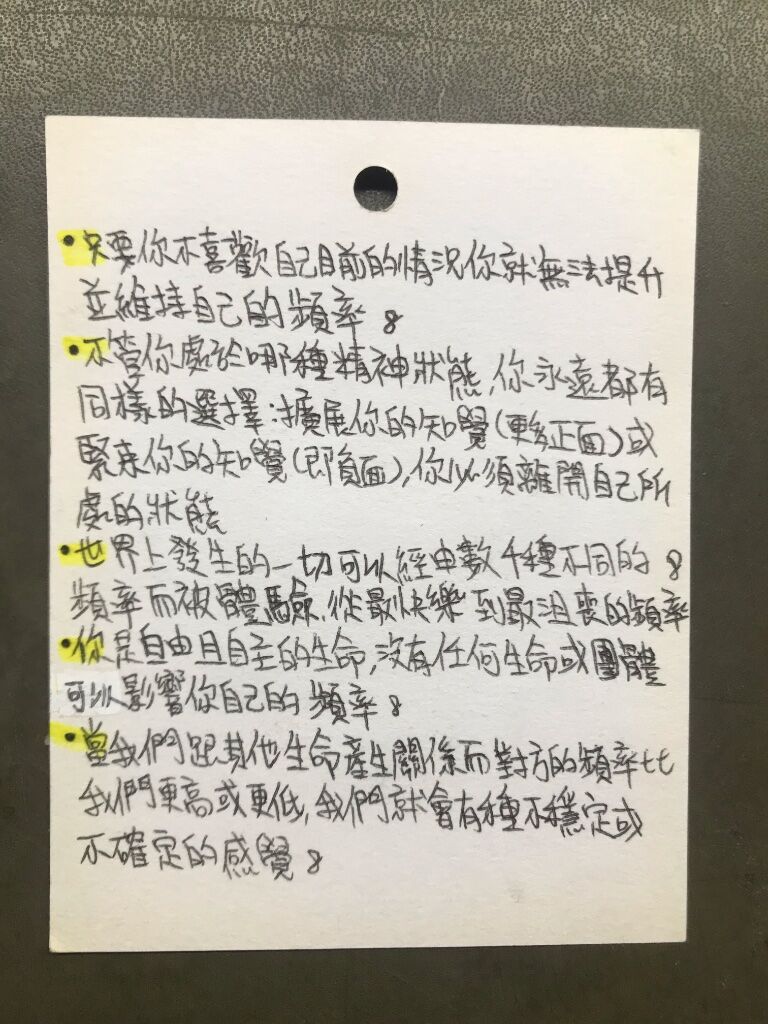 • 只要你不喜歡自己目前的情況你就無法提升
並維持自己的頻率。
• 不管你處於哪種精神狀態,你永遠都有
同樣的選擇:擴展你的知覺(更多正面)或
緊束你的知覺(即負面),你必須離開自己所
處的狀態
• 世界上發生的一切可以經由數千種不同的。
頻率而被體驗,從最快樂到最沮喪的頻率
• 你是自由且自主的生命,沒有任何生命或團體
可以影響你自己的頻率。
• 當我們跟其他生命產生關係而對方的頻率比
我們更高或更低,我們就會有種不穩定或
不確定的感覺。